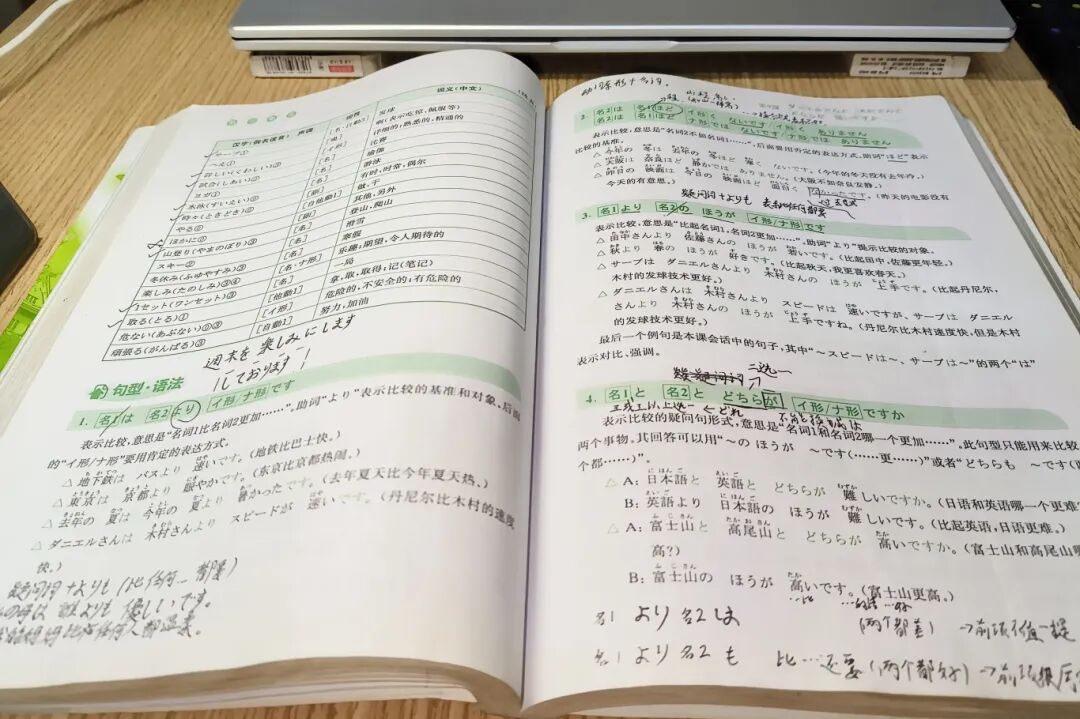 汉字(假名读音) 声调 词性 语义(中文)
サーブ① [名·他动3] 发球
詳しい(くわしい)③ [イ形] 详细的;熟悉的,精通的
試合(しあい)⓪ [名] 比赛
ヨガ① [名] 瑜伽
水泳(すいえい)⓪ [名] 游泳
時々(ときどき)⓪ [副] 有时,时常,偶尔
やる⓪ [他动1] 做,干
ほかに⓪ [副] 其他,另外
山登り(やまのぼり)③ [名] 登山,爬山
スキー② [名] 滑雪
冬休み(ふゆやすみ)③ [名] 寒假
楽しみ(たのしみ)③④ [名·ナ形] 乐趣;期望,令人期待的
1セット(ワンセット)③ [名] 一局
取る(とる)① [他动1] 拿,取,取得;记(笔记)
危ない(あぶない)⓪③ [イ形] 危险的,不安全的;有危险的
頑張る(がんばる)③ [自动1] 努力,加油
週末を楽しみにします
しております
句型·语法
1. 名1は 名2より イ形/ナ形です
表示比较,意思是“名词1比名词2更加……”。助词“より”表示比较的基准和对象。后面
的“イ形/ナ形”要用肯定的表达方式。
△ 地下鉄は バスより 速いです。(地铁比巴士快。)
△ 東京は 京都より 賑やかです。(东京比京都热闹。)
△ 去年の 夏は 今年の 夏より 暑かったです。(去年夏天比今年夏天热。)
△ ダニエルさんは 木村さんより スピードが 速いです。(丹尼尔比木村的速度
快。)
疑问词+よりも(比任何…都)
誰よりも 優しいです。
2. 名2は 名1ほど イ形く ないです/イ形く ありません
名2は 名1ほど ナ形では ないです/ナ形では ありません
表示比较,意思是“名词2不如名词1……”,后面要用否定的表达方式。助词“ほど”表示
比较的基准。
△ 今年の 冬は 去年の 冬ほど 寒く ないです。(今年的冬天没有去年冷。)
△ 大阪は 奈良ほど 静かでは ありません。(大阪不如奈良安静。)
△ 昨日の 映画は 今日の 映画ほど 面白く なかったです。(昨天的电影没有
今天的有意思。)
疑问词+よりも 表示比任何都
3. 名1より 名2の ほうが イ形/ナ形です
表示比较,意思是“比起名词1,名词2更加……”。助词“より”提示比较的对象。
△ 田中さんより 佐藤さんの ほうが 若いです。(比起田中,佐藤更年轻。)
△ 秋より 春の ほうが 好きです。(比起秋天,我更喜欢春天。)
△ サーブは ダニエルさんより 木村さんの ほうが 上手です。(比起丹尼尔,
木村的发球技术更好。)
△ ダニエルさんは 木村さんより スピードは 速いですが、サーブは ダニエル
さんより 木村さんの ほうが 上手ですね。(丹尼尔比木村速度快,但是木村
的发球技术更好。)
最后一个例句是本课会话中的句子,其中“~スピードは~、サーブは~”的两个“は”
表示对比、强调。
二选一
4. 名1と 名2と どちらが イ形/ナ形ですか
三或三以上选一 ← どれ 不能换成は
表示比较的疑问句形式,意思是“名词1和名词2哪一个更加……”。此句型只能用来比较
两个事物。其回答可以用“~の ほうが ~です(……更……)”或者“どちらも ~です
个都……)”。
△ A: 日本語と 英語と どちらが 難しいですか。(日语和英语哪一个更难
B: 英語より 日本語の ほうが 難しいです。(比起英语,日语更难。)
△ A: 富士山と 高尾山と どちらが 高いですか。(富士山和高尾山哪
高?)
B: 富士山の ほうが 高いです。(富士山更高。)
名1 より 名2 は (两个都差) →前项不值一提
名1 より 名2 も 比…还要(两个都好) →前项很